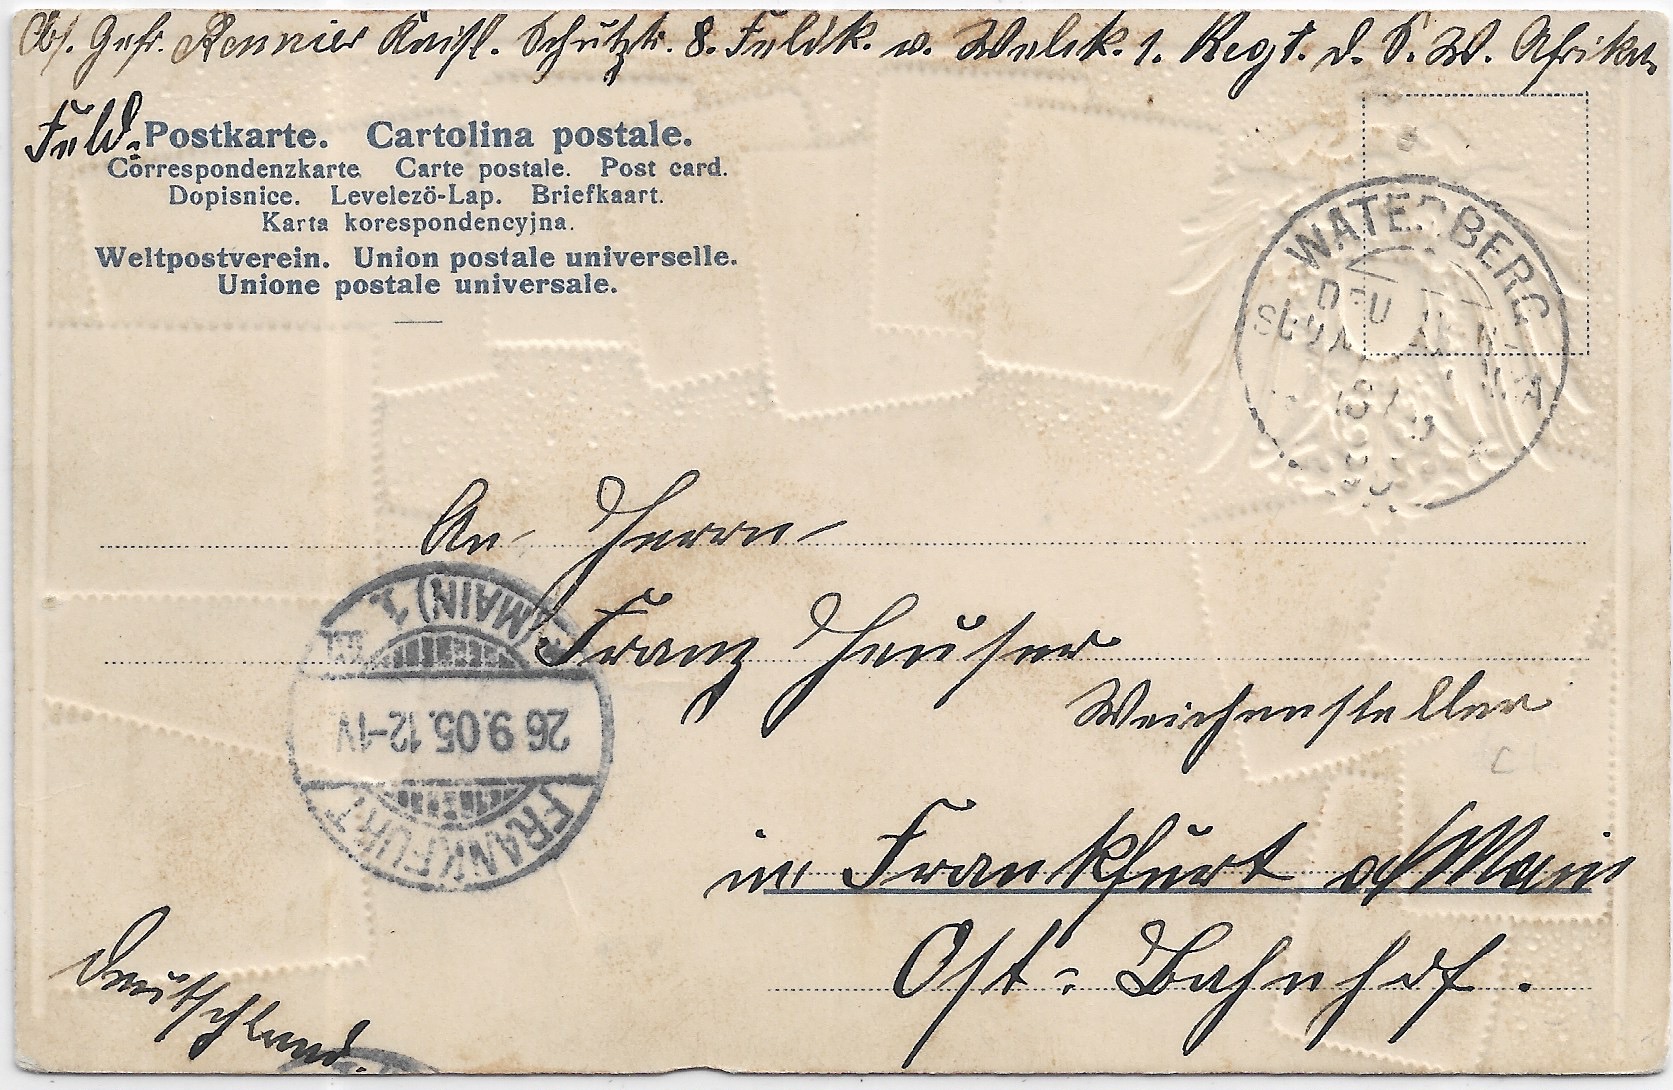 Abs. Gefr. Rennier Kaisl. Schutztr. 8. Feldk. v. 1. Regt. d. S. W. Afrika
Feld-Postkarte. Cartolina postale.
Correspondenzkarte Carte postale. Post card.
Dopisnice. Levelezö-Lap. Briefkaart.
Karta korespondencyjna.
Weltpostverein. Union postale universelle.
Unione postale universale.
WATERBERG
An Herrn
Franz Heuser
Weichensteller
in Frankfurt a/Main
Ost-Bahnhof.
Deutschland.
FRANKFURT (MAIN) 1
26.9.05.12-1V